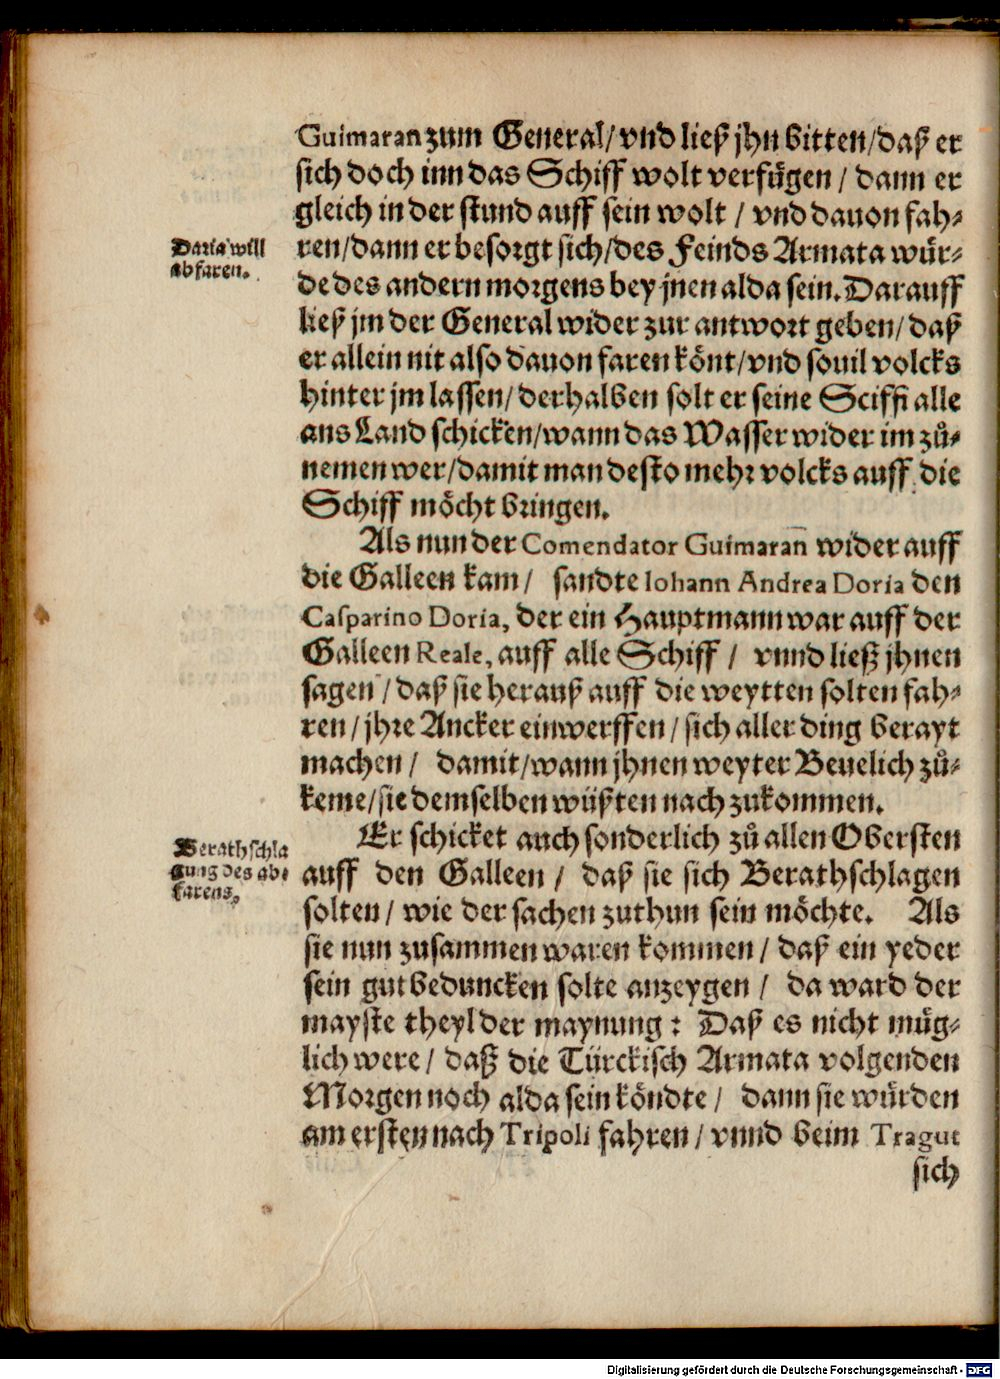 Guimaran zum General/ vnd ließ jhn bitten/ daß er
sich doch inn das Schiff wolt verfügen / dann er
gleich in der stund auff sein wolt / vnd dauon fah⸗
Daria will
abfaren.
ren/ dann er besorgt sich/ des Feinds Armata wür⸗
de des andern morgens bey jnen alda sein. Darauff
ließ jm der General wider zur antwort geben/ daß
er allein nit also dauon faren könt/ vnd souil volcks
hinter jm lassen/ derhalben solt er seine Sciffi alle
ans Land schicken/ wann das Wasser wider im zů⸗
nemen wer/ damit man desto mehr volcks auff die
Schiff möcht bringen.
Als nun der Comendator Guimaran̄ wider auff
die Galleen kam/ sandte Iohann Andrea Doria den
Casparino Doria, der ein Hauptmann war auff der
Galleen Reale, auff alle Schiff / vnnd ließ jhnen
sagen / daß sie herauß auff die weytten solten fah⸗
ren / jhre Ancker einwerffen / sich aller ding berayt
machen / damit/ wann jhnen weyter Beuelich zů⸗
keme/ sie demselben wüßten nach zukommen.
Er schicket auch sonderlich zů allen Obersten
Berathschla
gung des ab⸗
farens.
auff den Galleen / daß sie sich Berathschlagen
solten / wie der sachen zuthun sein möchte. Als
sie nun zusammen waren kommen / daß ein yeder
sein gutbeduncken solte anzeygen / da ward der
mayste theyl der maynung : Daß es nicht müg⸗
lich were / daß die Türckisch Armata volgenden
Morgen noch alda sein köndte / dann sie würden
am ersten nach Tripoli fahren / vnnd beim Tragut
sich
Digitalisierung gefördert durch die Deutsche Forschungsgemeinschaft - DFG